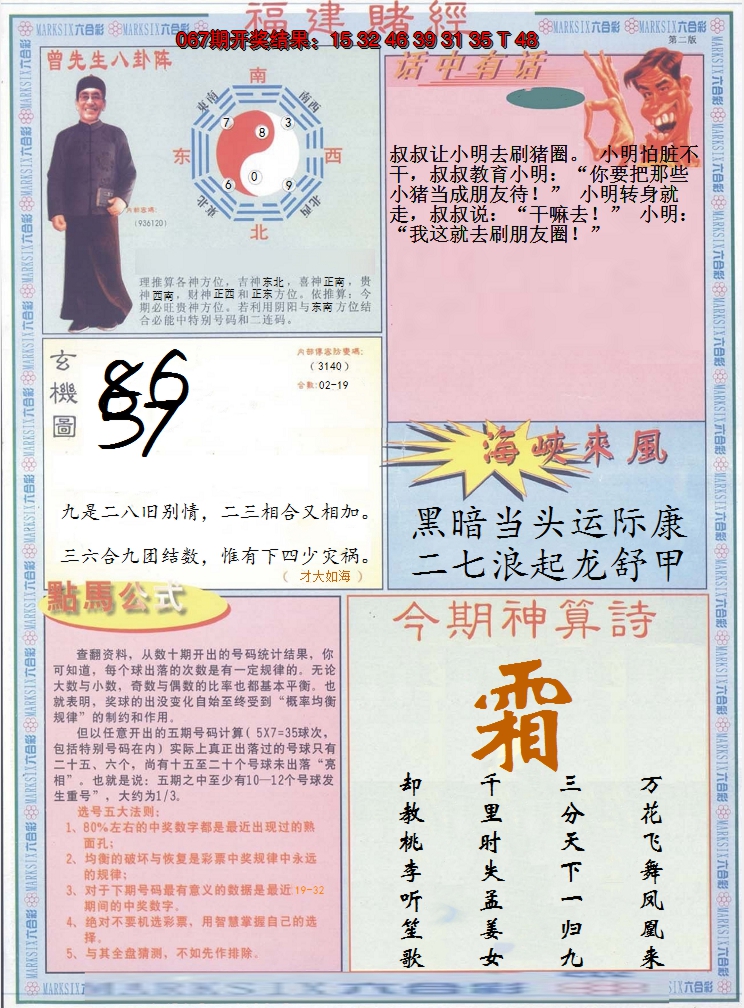 福建賭經
067期开奖结果：15 32 46 39 31 35 T 48
MARKSIX六合彩 MARKSIX六合彩 MARKSIX六合彩
第二版
曾先生八卦阵
南
东南
南西
7
8
3
东
西
6
0
9
东北
西北
北
内部密码:
(936120)
理推算各神方位，吉神东北，喜神正南，贵
神西南，财神正西和正东方位。依推算：今
期必旺贵神方位。若利用阴阳与东南方位结
合必能中特别号码和二连码。
话中有话
叔叔让小明去刷猪圈。 小明怕脏不
干，叔叔教育小明：“你要把那些
小猪当成朋友待！” 小明转身就
走，叔叔说：“干嘛去！” 小明：
“我这就去刷朋友圈！”
玄機圖
86
37
内部傳密防變碼:
(3140)
合数:02-19
九是二八旧别情，二三相合又相加。
三六合九团结数，惟有下四少灾祸。
（ 才大如海 ）
海峽來風
黑暗当头运际康
二七浪起龙舒甲
點馬公式
查翻资料，从数十期开出的号码统计结果，你
可知道，每个球出落的次数是有一定规律的。无论
大数与小数，奇数与偶数的比率也都基本平衡。也
就表明，奖球的出没变化自始至终受到“概率均衡
规律”的制约和作用。
但以任意开出的五期号码计算（5X7=35球次，
包括特别号码在内）实际上真正出落过的号球只有
二十五、六个，尚有十五至二十个号球未出落“亮
相”。也就是说：五期之中至少有10—12个号球发
生重号”，大约为1/3。
选号五大法则：
1、80%左右的中奖数字都是最近出现过的熟
面孔；
2、均衡的破坏与恢复是彩票中奖规律中永远
的规律；
3、对于下期号码最有意义的数据是最近19-32
期间的中奖数字。
4、绝对不要机选彩票，用智慧掌握自己的选
择。
5、与其全盘猜测，不如先作排除。
今期神算詩
霜
万花飞舞凤凰来
三分天下一归九
千里时失孟姜女
却教桃李听笙歌